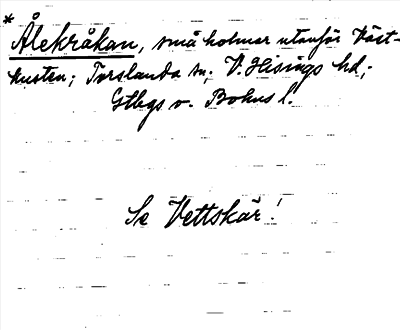 * Ålekråkan, små holmar utanför Väst-
kusten; Torslanda sn; V. Hisings hd;
Gtbgs o. Bohus l.
Se Vettskär!